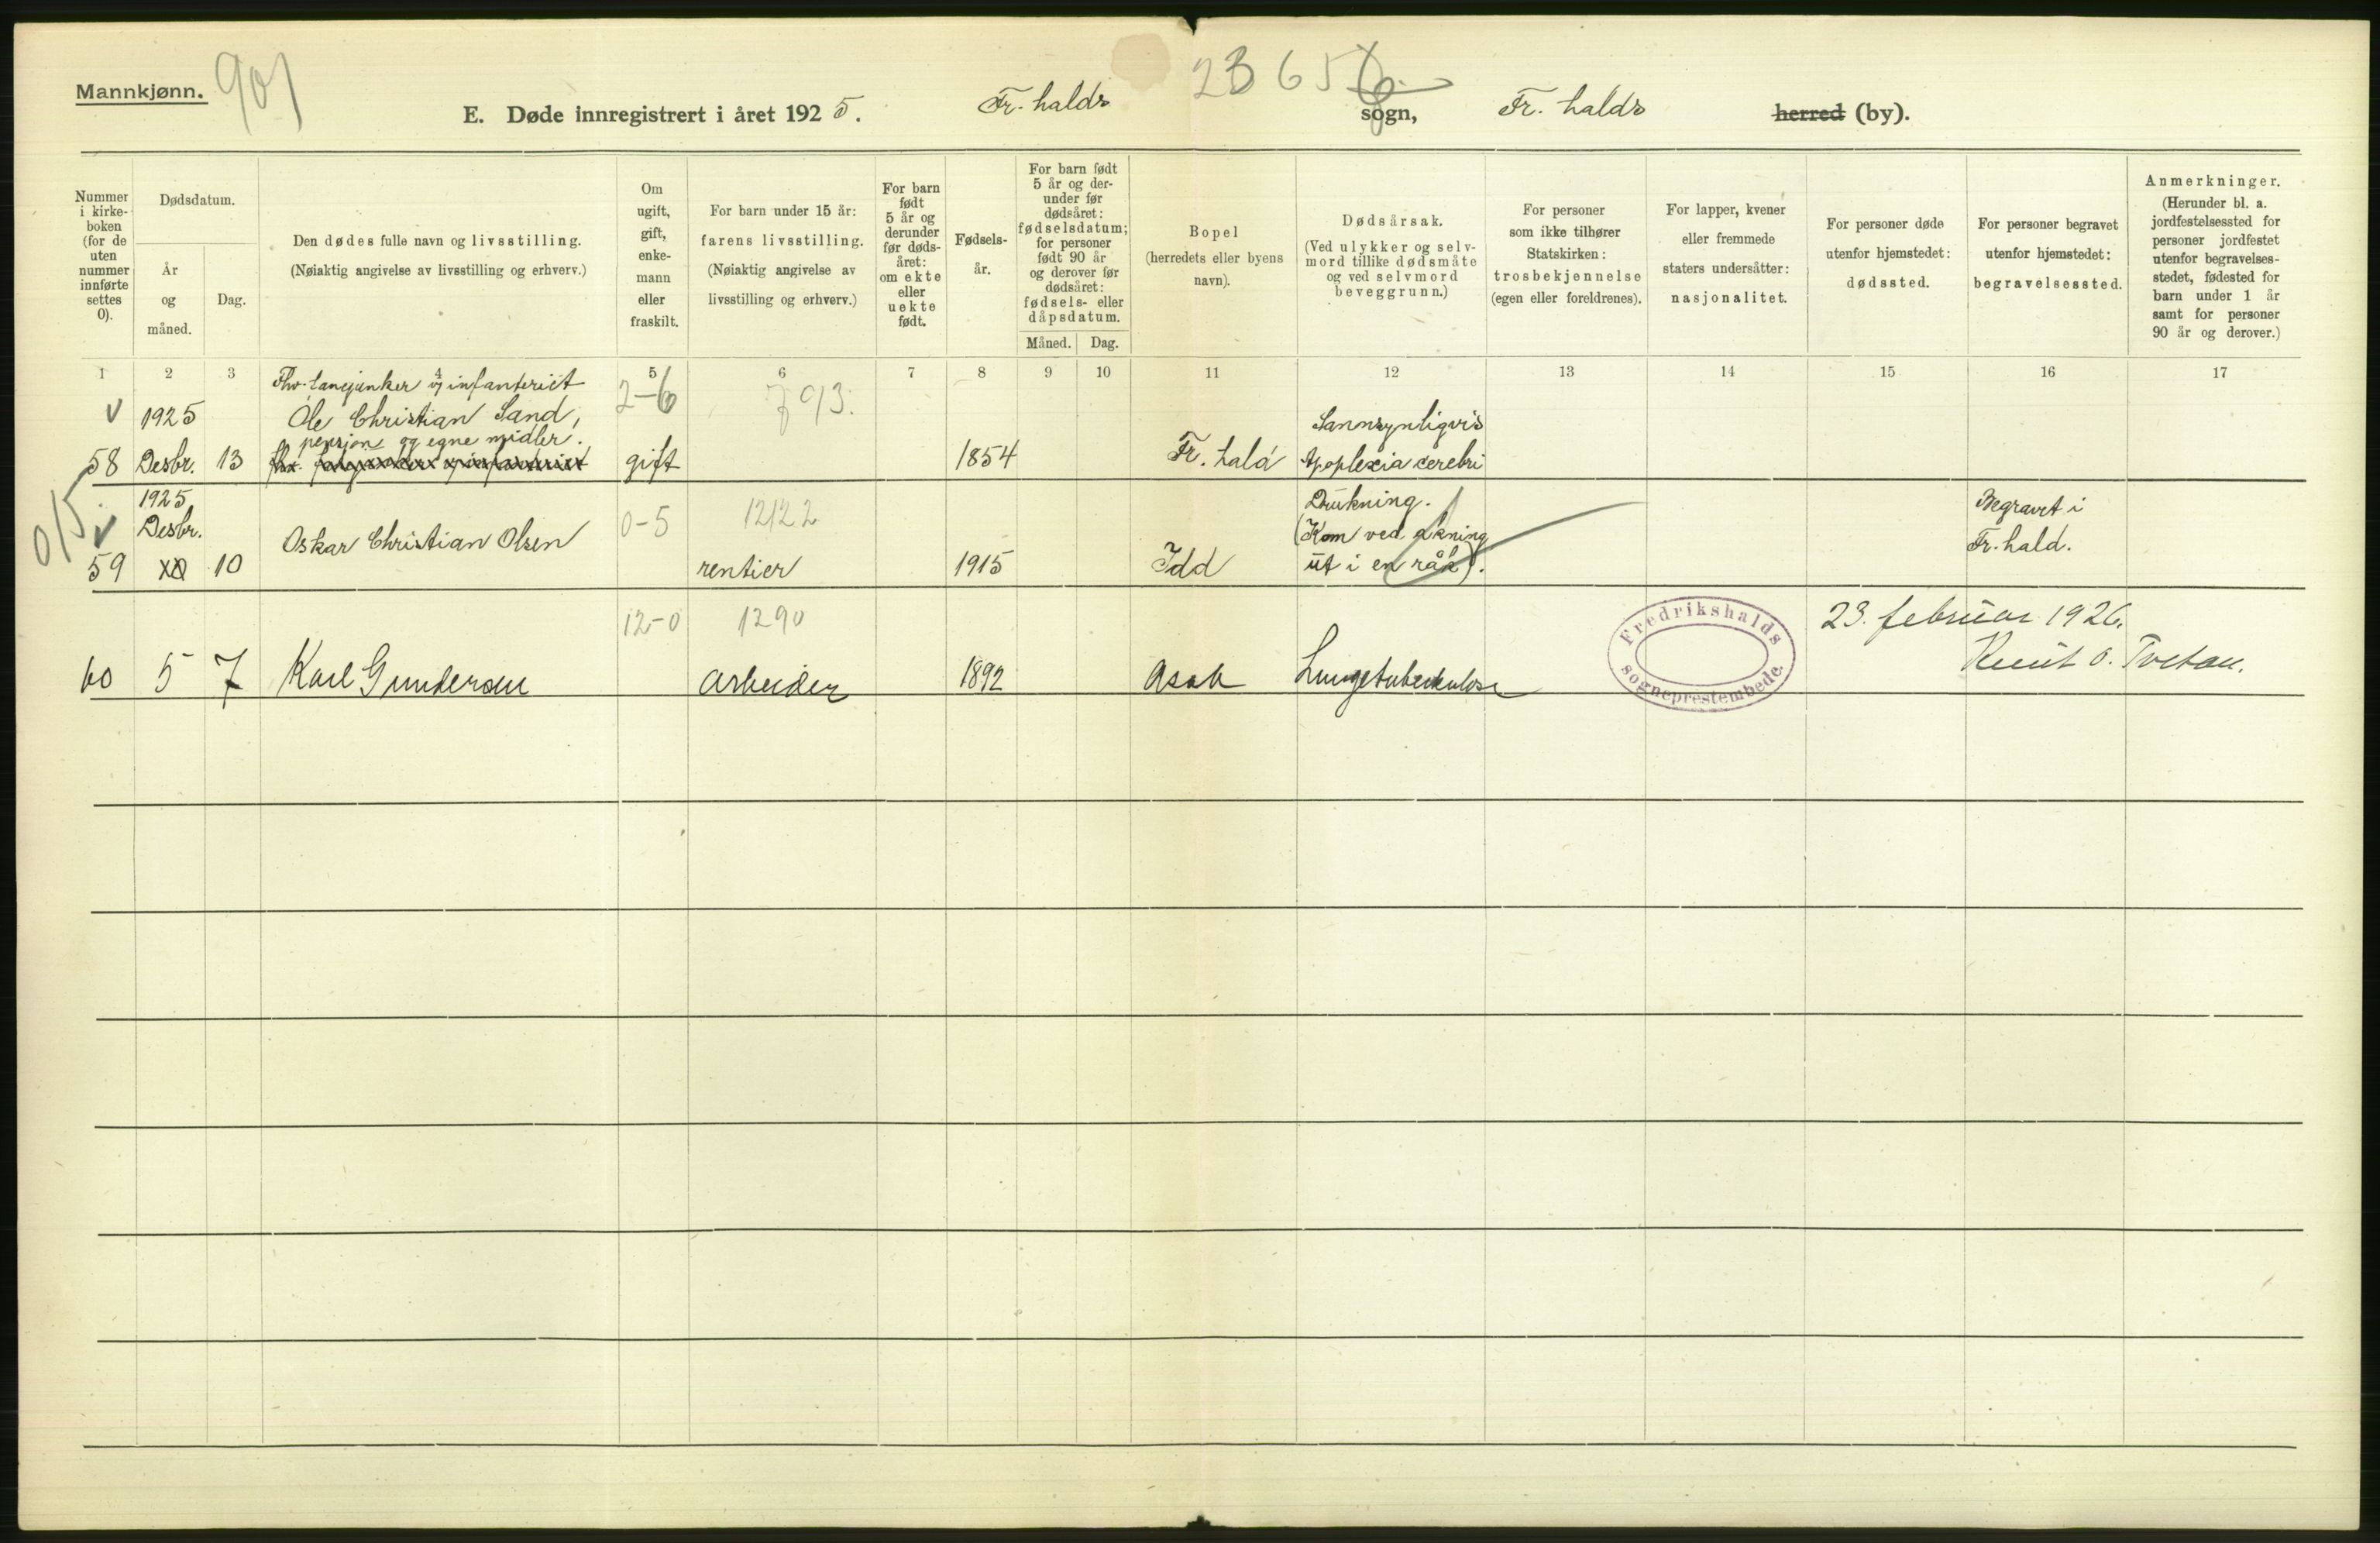 Mannkjønn.
901
23656
E. Døde innregistrert i året 1925. Fr.halds sogn, Fr. halds herred (by).
Nummer i kirkeboken (for de uten nummer innførte settes 0).
Dødsdatum.
År og måned.
Dag.
Den dødes fulle navn og livsstilling.
(Nøiaktig angivelse av livsstilling og erhverv.)
Om ugift, gift, enkemann eller fraskilt.
For barn under 15 år: farens livsstilling.
(Nøiaktig angivelse av livsstilling og erhverv.)
For barn født 5 år og derunder før dødsåret: om ekte eller uekte født.
Fødselsår.
For barn født 5 år og derunder før dødsåret: fødselsdatum; for personer født 90 år og derover før dødsåret: fødsels- eller dåpsdatum.
Måned. Dag.
Bopel
(herredets eller byens navn).
Dødsårsak.
(Ved ulykker og selvmord tillike dødsmåte og ved selvmord beveggrunn.)
For personer som ikke tilhører Statskirken: trosbekjennelse (egen eller foreldrenes).
For lapper, kvener eller fremmede staters undersåtter: nasjonalitet.
For personer døde utenfor hjemstedet: dødssted.
For personer begravet utenfor hjemstedet: begravelsessted.
Anmerkninger.
(Herunder bl. a. jordfestelsessted for personer jordfestet utenfor begravelsesstedet, fødested for barn under 1 år samt for personer 90 år og derover.)
1 2 3 4 5 6 7 8 9 10 11 12 13 14 15 16 17
infanteriet
1925 Ole Christian Sand, 2-6 793. Sannsynligvis
pensjon og egne midler.
58 Desbr. 13 gift 1854 Fr. hald Apoplexia cerebri
1925 Drukning. Begravet i
Desbr. Oskar Christian Olsen 0-5 1212 2 (Kom ved akning Fr.hald.
59 10 rentier 1915 Idd ut i en råk).
015
12-0 1290 23. februar 1926.
60 5 7 Karl Gundersen arbeider 1892 Asak Lungetuberkulose Knut O. Tvetan.
Fredrikshalds sogneprestembede